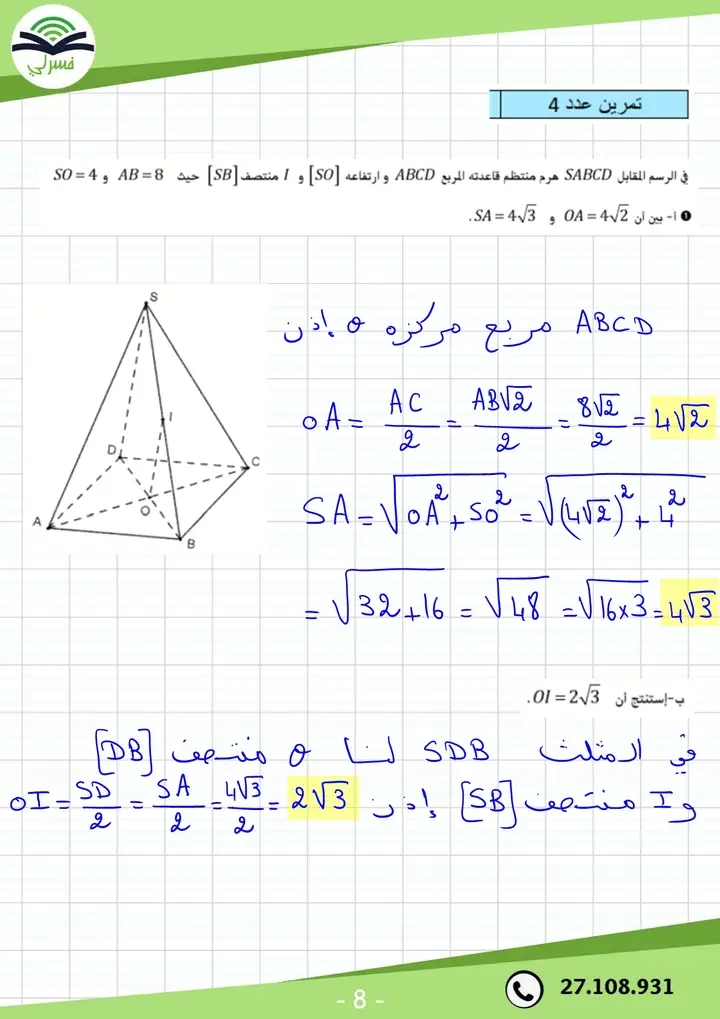 فسرلي
تمرين عدد 4
في الرسم المقابل SABCD هرم منتظم قاعدته المربع ABCD و ارتفاعه [SO] و I منتصف [SB] حيث AB = 8 و SO = 4
❶ أ- بين ان OA = 4√2 و SA = 4√3 .
ABCD مربع مركزه O إذن
OA = AC/2 = AB√2/2 = 8√2/2 = 4√2
SA = √(OA² + SO²) = √((4√2)² + 4²)
= √(32+16) = √48 = √(16×3) = 4√3
S
I
D
C
O
A
B
ب- إستنتج أن OI = 2√3 .
في المثلث SDB لنا O منتصف [DB]
و I منتصف [SB] إذن OI = SD/2 = SA/2 = 4√3/2 = 2√3
27.108.931
- 8 -